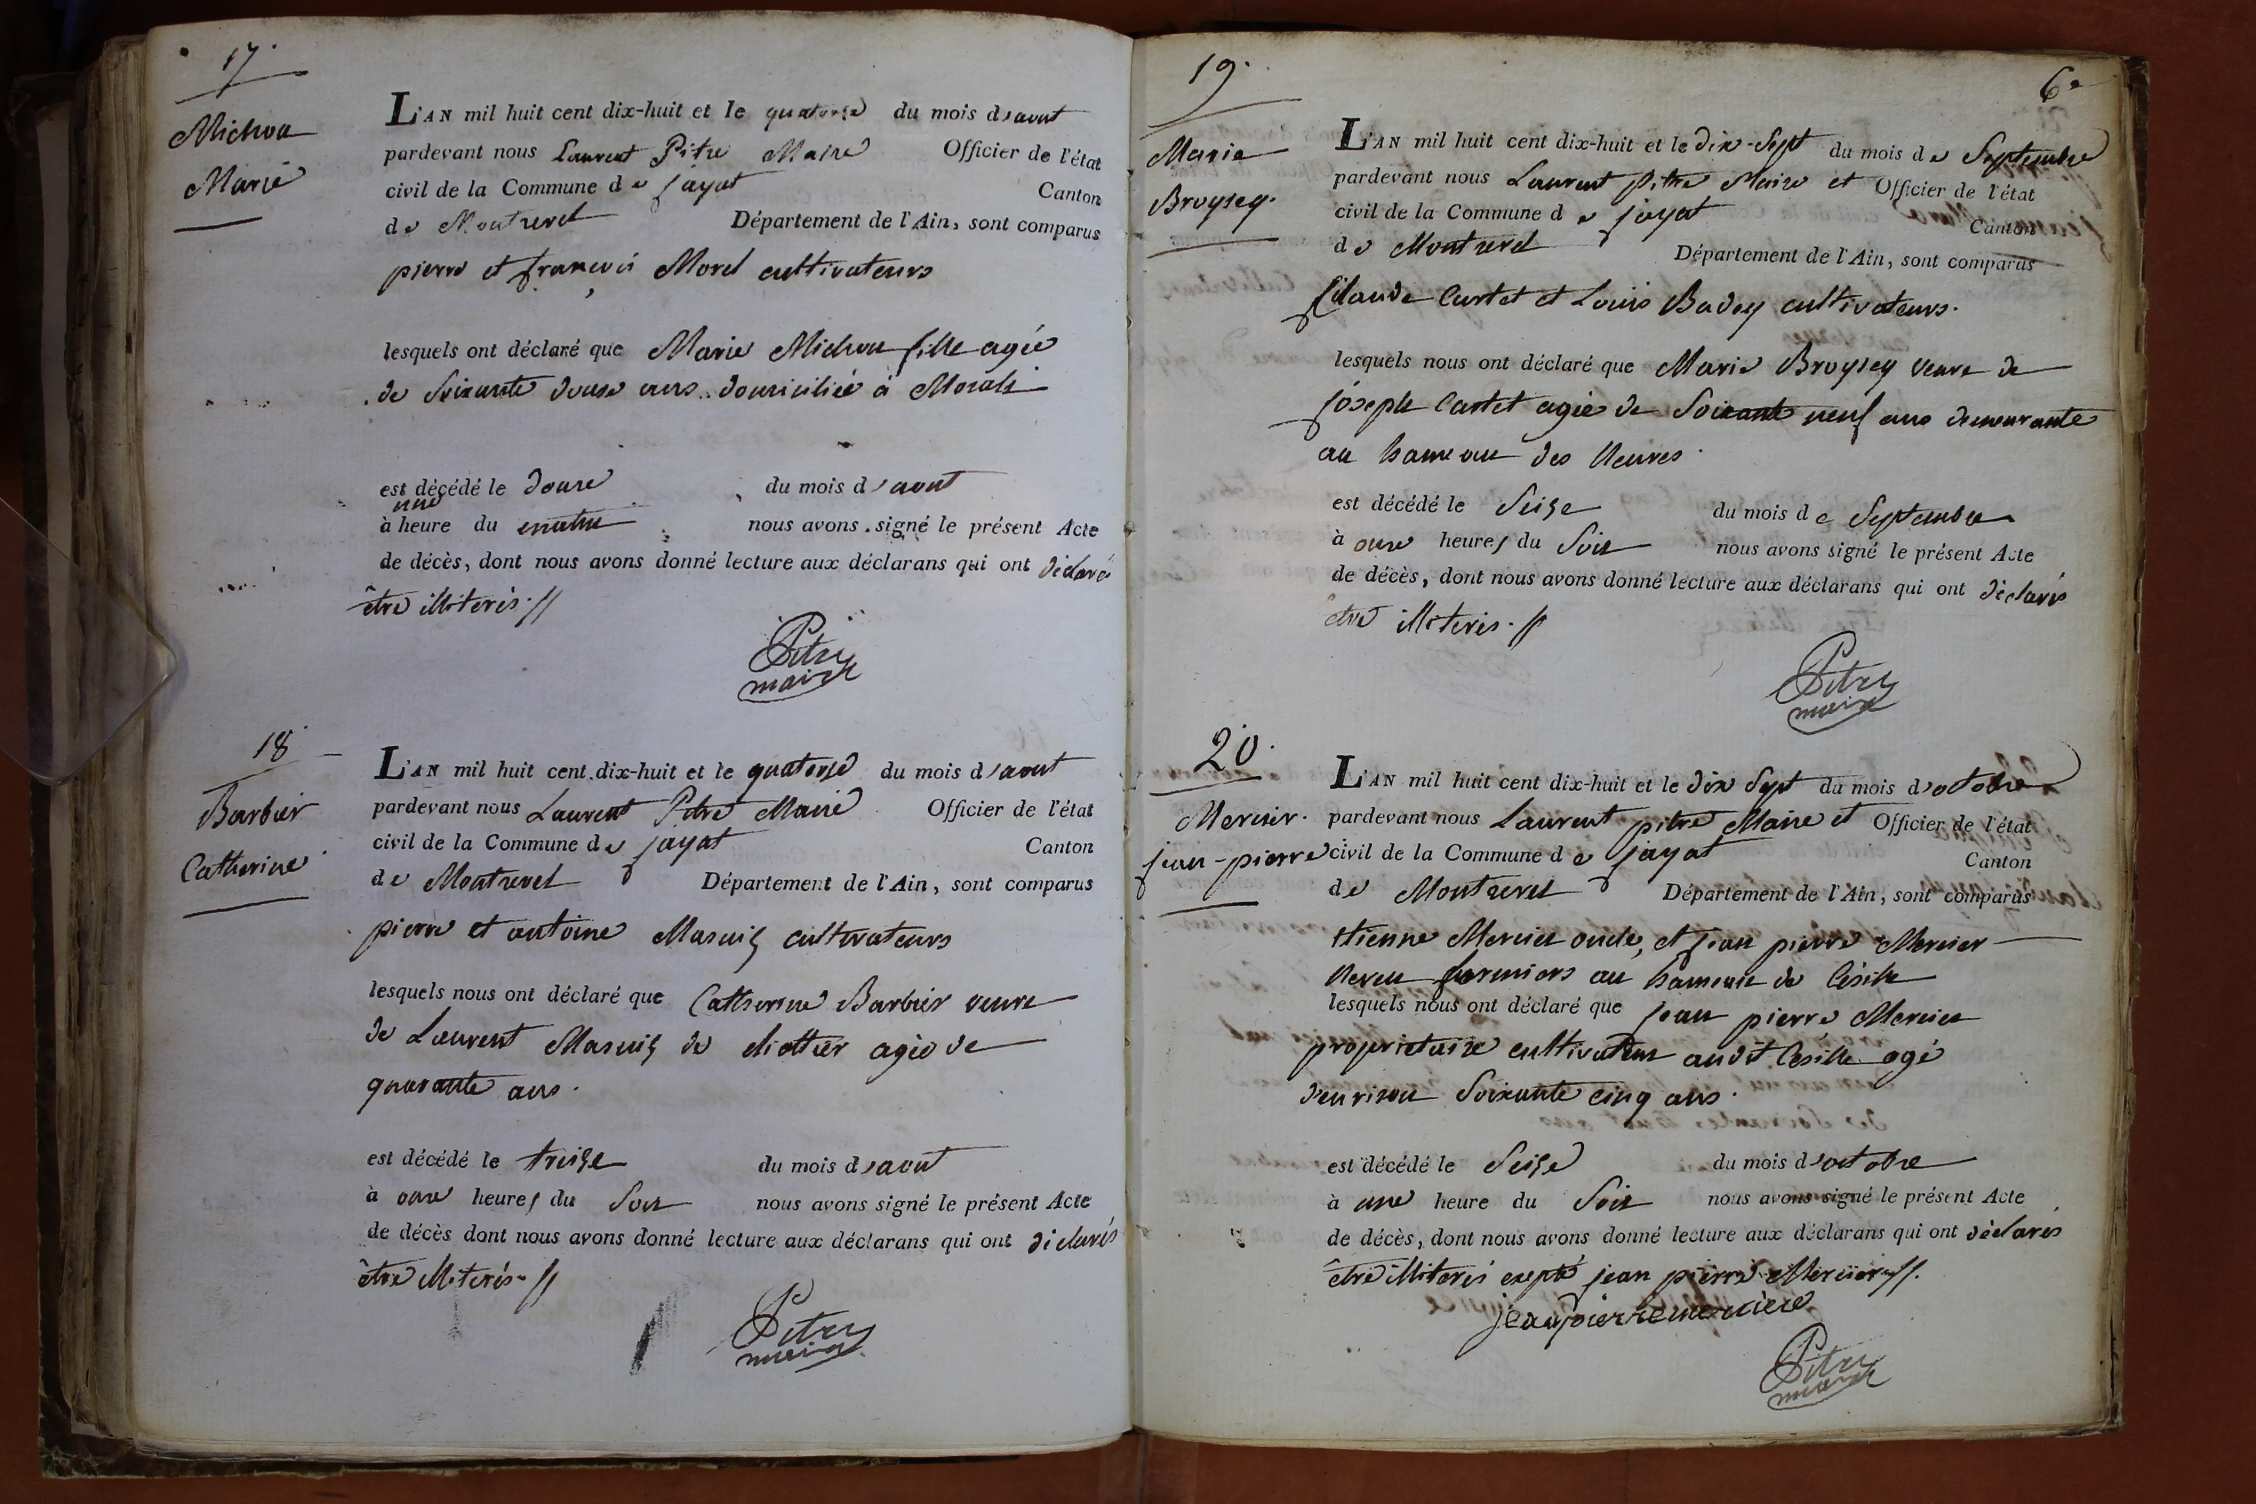 17.
Michon
Marie
L'AN mil huit cent dix-huit et le quatorse du mois d'aout
pardevant nous Laurent Pitre Maire Officier de l'état
civil de la Commune de jayat Canton
de Montrevel Département de l'Ain, sont comparus
pierre et françois Morel cultivateurs
lesquels ont déclaré que Marie Michon fille agée
de Soixante douse ans domiciliée à
est décédé le douse du mois d'aout
une
à heure du matin nous avons signé le présent Acte
de décès, dont nous avons donné lecture aux déclarans qui ont déclarés
être illiterés.//
Pitre
maire
18
Barbier
Catherine
L'AN mil huit cent dix-huit et le quatorse du mois d'aout
pardevant nous Laurent Pitre Maire Officier de l'état
civil de la Commune de jayat Canton
de Montrevel Département de l'Ain, sont comparus
pierre et antoine Masuis cultivateurs
lesquels nous ont déclaré que Catherine Barbier veuve
de Laurent Masuis de agée de
quarante ans.
est décédé le treise du mois d'aout
à onse heures du Soir nous avons signé le présent Acte
de décès dont nous avons donné lecture aux déclarans qui ont déclarés
être illiterés.//
Pitre
maire
19.
6e
Marie
Broysey.
L'AN mil huit cent dix-huit et le dix-Sept du mois de Septembre
pardevant nous Laurent pitre Maire et Officier de l'état
civil de la Commune de jayat Canton
de Montrevel Département de l'Ain, sont comparus
Claude Curtet et Louis Badey cultivateurs.
lesquels nous ont déclaré que Marie Broysey veuve de
joseph Curtet agée de Soixante neuf ans demeurante
au hameau des
est décédé le Seise du mois de Septembre
à onse heures du Soir nous avons signé le présent Acte
de décès, dont nous avons donné lecture aux déclarans qui ont déclarés
être illiterés.//
Pitre
maire
20.
Mercier.
jean-pierre
L'AN mil huit cent dix-huit et le dix Sept du mois d'octobre
pardevant nous Laurent pitre Maire et Officier de l'état
civil de la Commune de jayat Canton
de Montrevel Département de l'Ain, sont comparus
Etienne Mercier oncle, et jean pierre Mercier
Neveu fermiers au hameau de Césille
lesquels nous ont déclaré que jean pierre Mercier
proprietaire cultivateur audit Cesille agé
d'environ Soixante cinq ans.
est décédé le Seise du mois d'octobre
à une heure du Soir nous avons signé le présent Acte
de décès, dont nous avons donné lecture aux déclarans qui ont déclarés
être illiterés exepté jean pierre Mercier//.
jeanpierre merciere
Pitre
maire